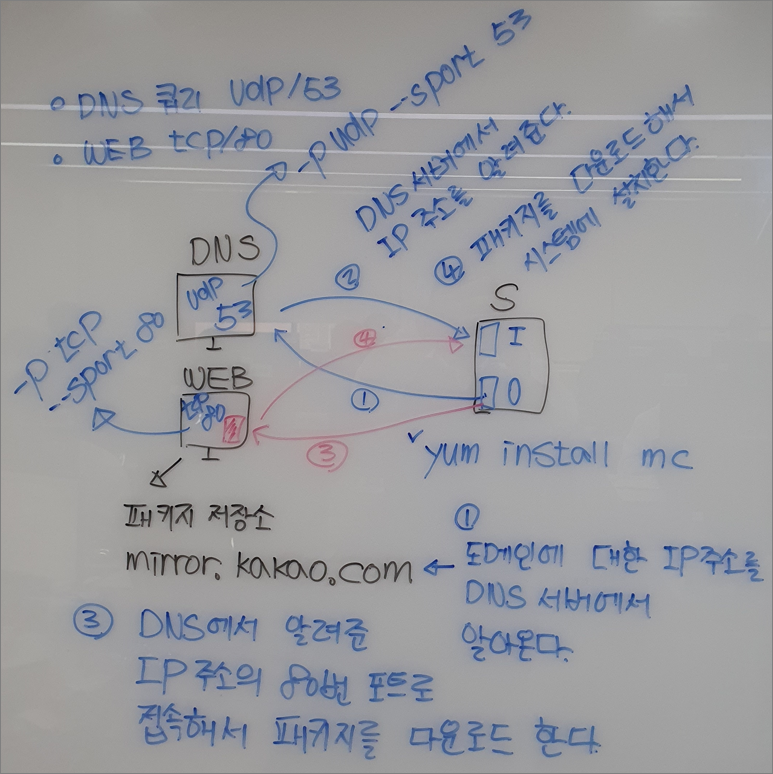 ○ DNS 쿼리 UDP/53
○ WEB tcp/80
-p udp --sport 53
DNS 서버에서
IP 주소를 알려준다.
④ 패키지를 다운로드해서
시스템에 설치한다.
DNS
UDP
53
②
S
I
O
④
①
③
-p tcp
--sport 80
WEB
tcp
80
✓yum install mc
패키지 저장소
mirror.kakao.com ←
①
도메인에 대한 IP주소를
DNS 서버에서
알아온다.
③ DNS에서 알려준
IP주소의 80번 포트로
접속해서 패키지를 다운로드 한다.